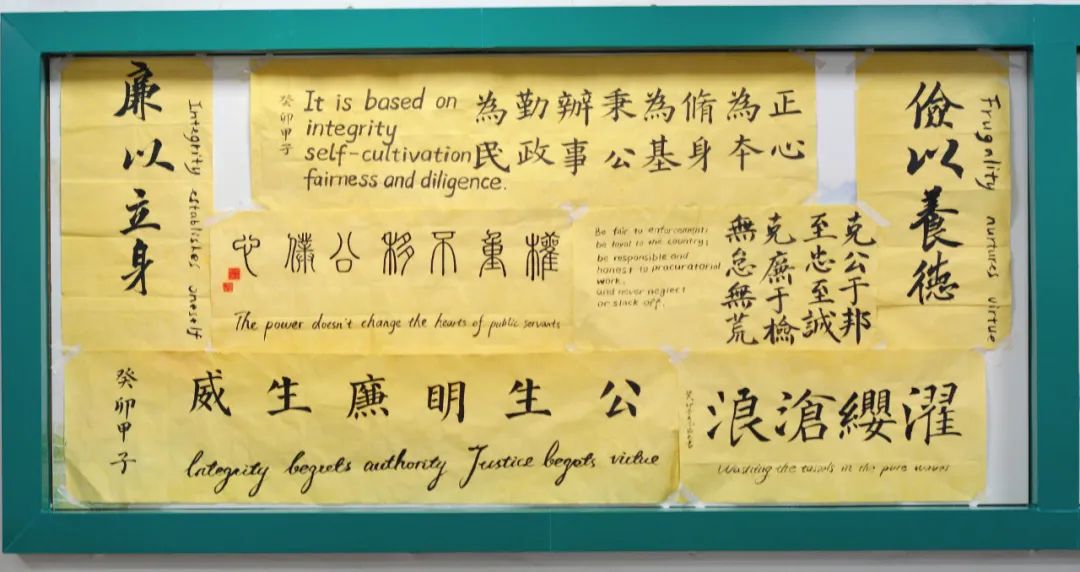 廉以立身
Integrity establishes oneself
正心
為本
脩身
為基
秉公
辦事
勤政
為民
It is based on
integrity
self-cultivation
fairness and diligence.
癸卯甲子
儉以養德
Frugality nurtures virtue
權重不移公僕心
The power doesn't change the hearts of public servants
克公于邦
至忠至誠
克廉于檢
無怠無荒
Be fair to enforcement;
be loyal to the country;
be responsible and
honest to procuratorial
work,
and never neglect
or slack off.
公生明廉生威
癸卯甲子
Integrity begets authority Justice begets virtue
濯纓滄浪
Washing the tassels in the pure waves